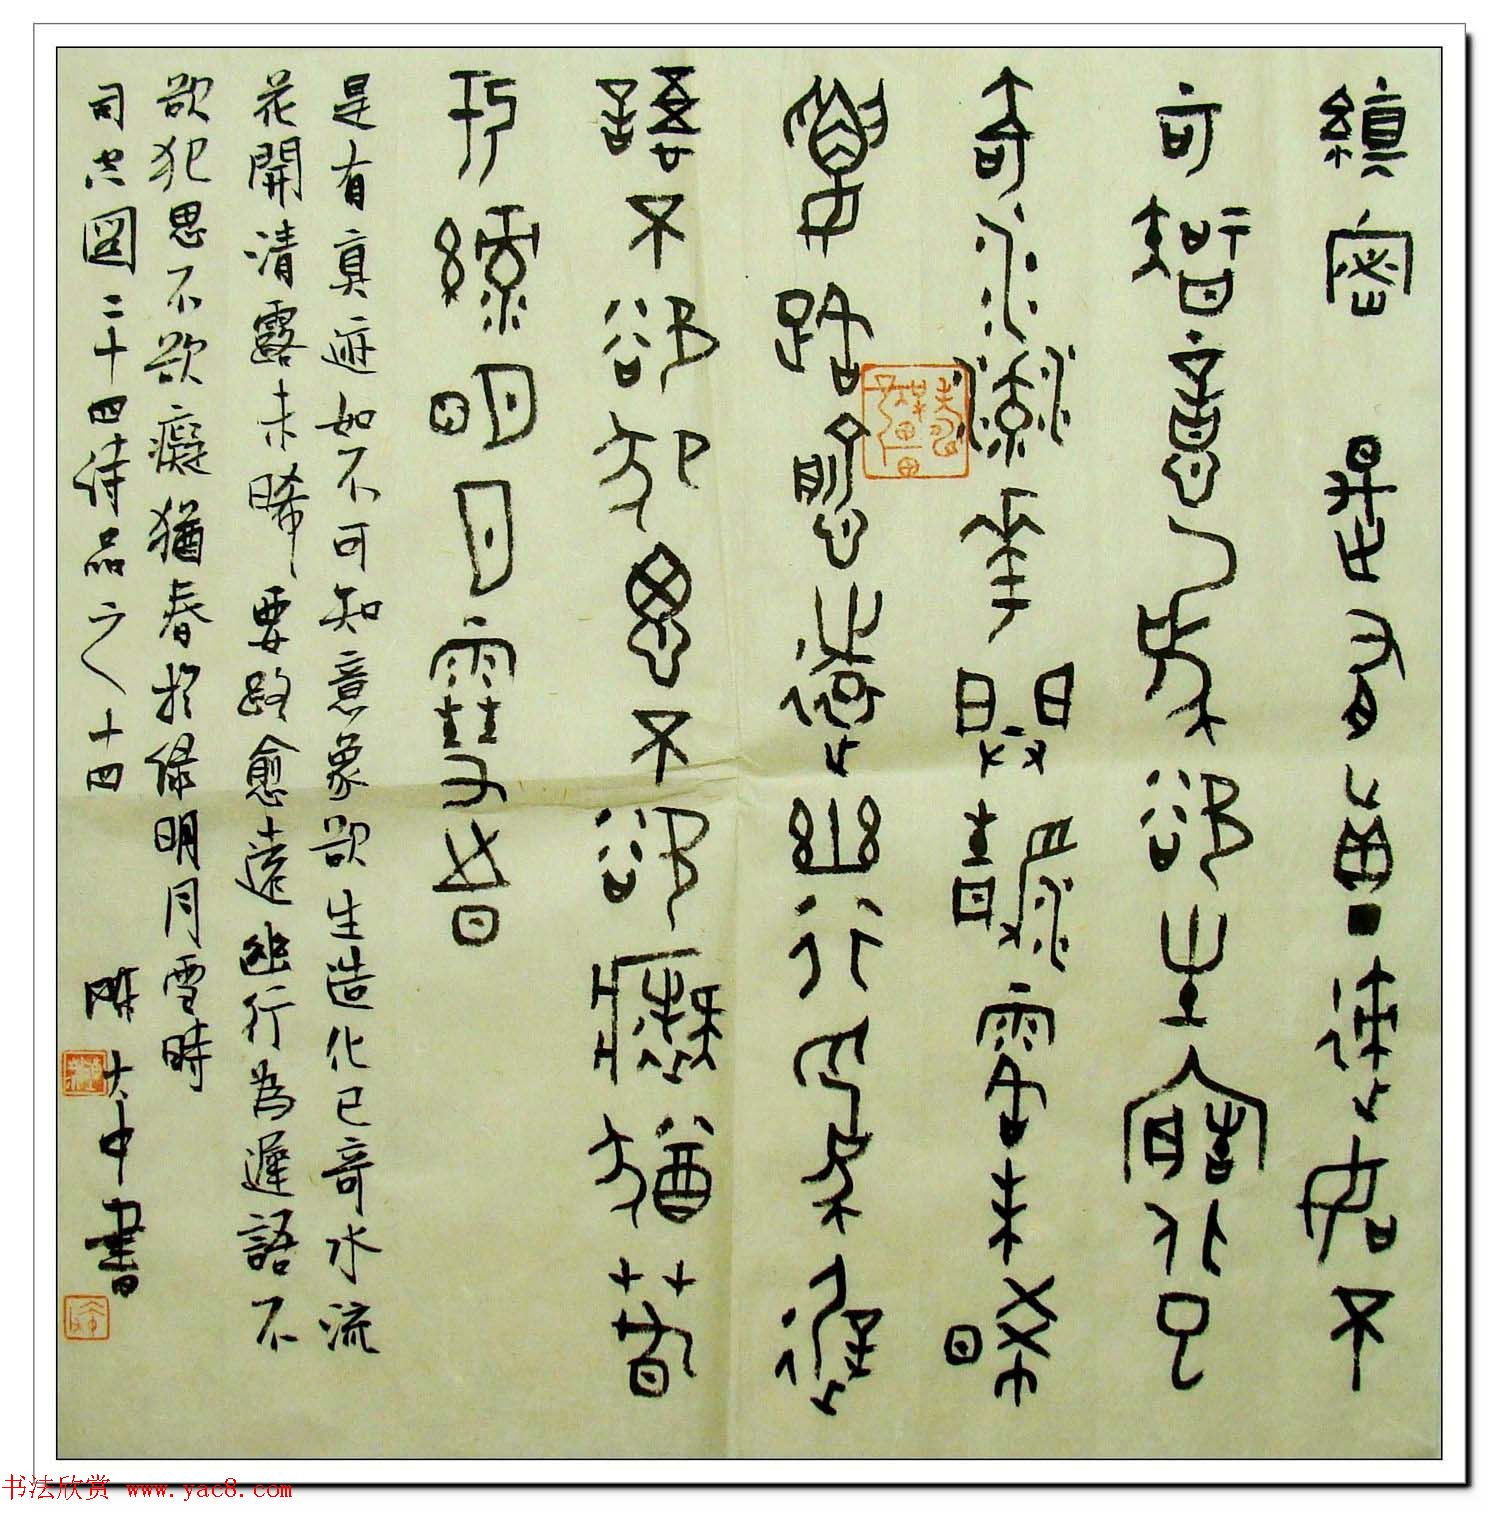 縝密 是有真迹如不
可智意象欲生造化已
奇水流華開清露未晞
要路愈遠幽行為遲
語不欲犯思不欲癡猶春
於綠明月雪時
是有真迹如不可知意象欲生造化已奇水流
花開清露未晞要路愈遠幽行為遲語不
欲犯思不欲癡猶春於綠明月雪時
司空圖二十四詩品之十四 陳大中書
书法欣赏 www.yac8.com